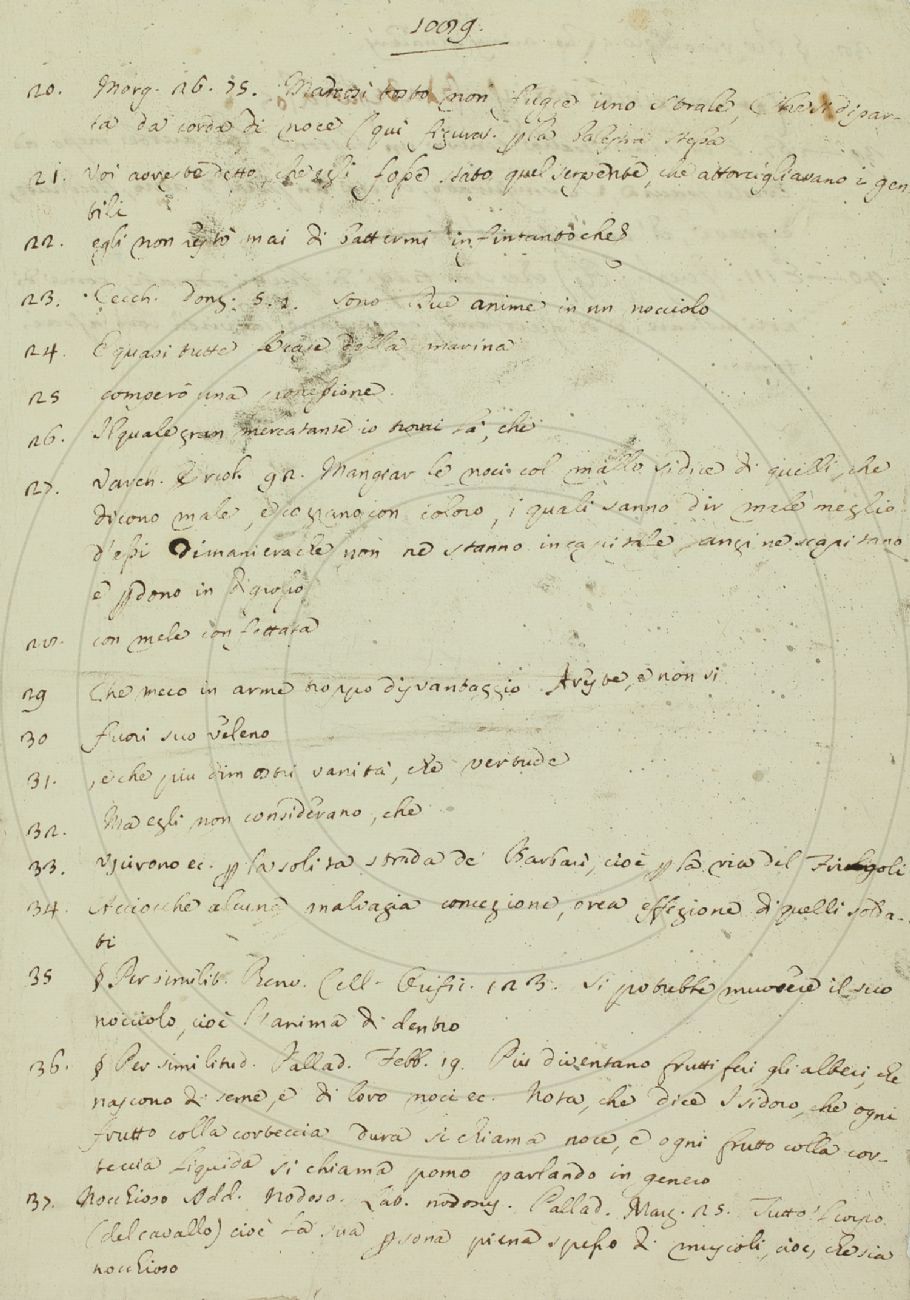 1009.
20. Morg. 26. 75. Ma così tosto non fugge uno strale, Che si dipar-
ta da corda di noce (qui figurat. p la balestra stessa
21. Voi avreste detto, che egli fosse stato quel serpente, che attorcigliavano i gen
tili
22. egli non restò mai di battermi infintantoche
23. Cecch. Donz. 5. 2. sono due anime in un nocciolo
24. E quasi tutte le case della marina
25 comperò una possessione
26. Il quale gran mercatante io trovai là, che
27. Varch. Ercol. 92. Mangiar le noci col mallo si dice di quelli, che
dicono male, e cozzano con coloro, i quali sanno dir male meglio
d'essi di maniera che non ne stanno in capitale, anzi ne scapitano
e pdono in digrosso
28. con mele confettata
29 Che meco in arme troppo disvantaggio Areste, e non si
30 fuori suo veleno
31. , e che piu dimostri vanità, che vertude
32. Ma egli non considerano, che
33. Usciron ec. p la solita strada de' Barbari, cioè p la via del
34. Acciocchè alcuna malvagia concezione, ovea effezione di quelli solda-
ti
35 § Per similit. Benv. Cell. Orific. 123. si potrebbe muovere il suo
nocciolo, cioè l'anima di dentro
36. § Per similitud. Pallad. Febb. 19. Piu diventano fruttiferi gli alberi, che
nascono di seme, e di loro noci ec. Nota, che dice Isidoro, che ogni
frutto colla corteccia dura si chiama noce, e ogni frutto colla cor-
teccia liquida si chiama pomo parlando in genero
37. Nocchioso Add. Nodoso. Lat. nodosus. Pallad. Marz. 25. Tutto 'l corpo
(del cavallo) cioè la sua psona piena spesso di muscoli, cioè, che sia
nocchioso